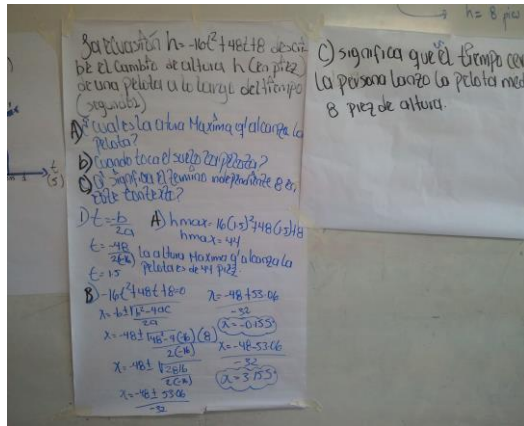 h = 8 piez
t
(s)
La ecuación h = -16t² + 48t + 8 descri
be el cambio de altura h (en piez)
de una pelota a lo largo del tiempo
(segundos)
A) ¿cual es la altura Maxima q' alcanza la
pelota?
b) Cuando toca el suelo la pelota?
C) Q' significa el termino independiente 8 en
este contexto?
1) t = -b/2a
t = -48/2(-16)
t = 1.5
A) h max = -16(1.5)² + 48(1.5) + 8
h max = 44
la altura Maxima q' alcanza la
pelota es de 44 piez.
B) -16t² + 48t + 8 = 0
x = -b ± √b² - 4ac / 2a
x = -48 ± √48² - 4(-16)(8) / 2(-16)
x = -48 ± √2816 / 2(-16)
x = -48 ± 53.06 / -32
x = -48 + 53.06 / -32
x = -0.155
x = -48 - 53.06 / -32
x = 3.155
C) significa que el tiempo
la persona lanzo la pelota
8 piez de altura.